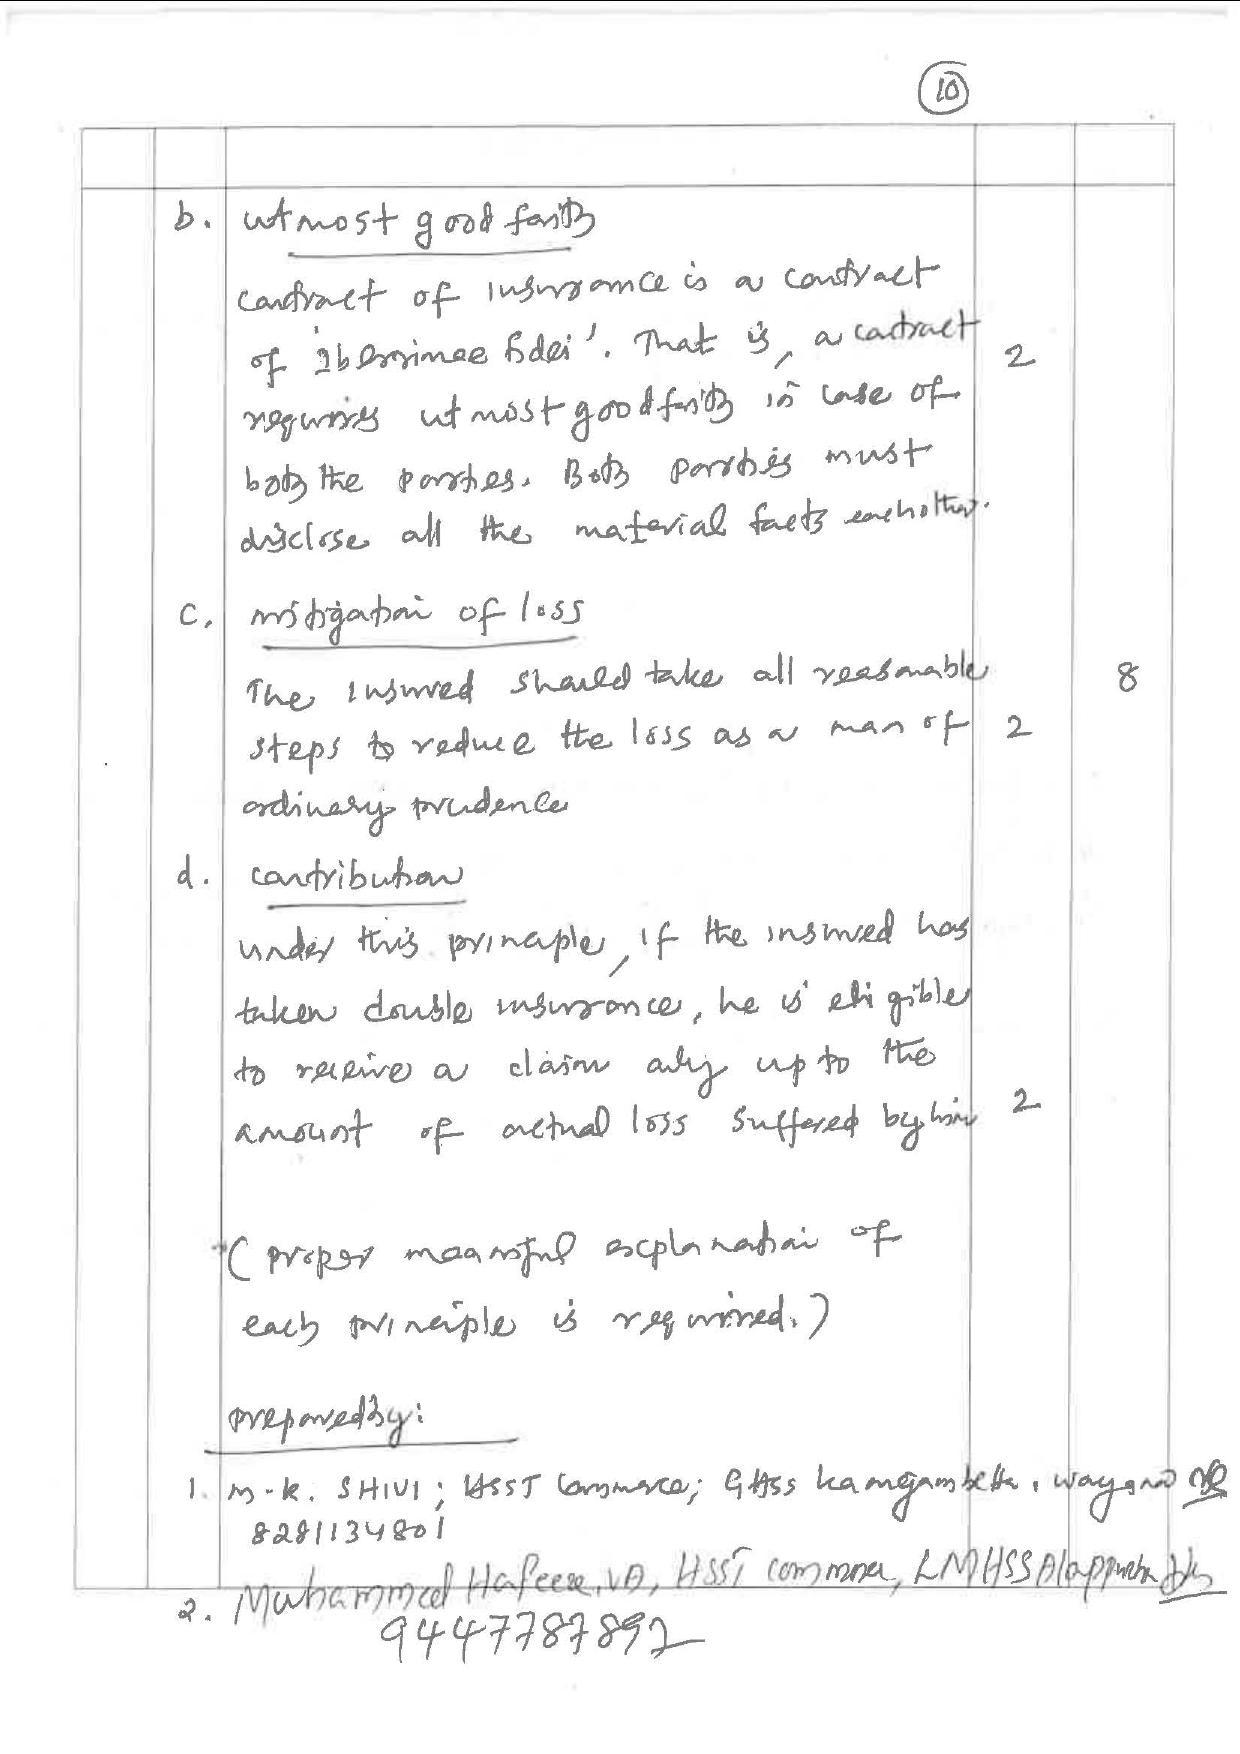 10
b. utmost good faith
contract of insurance is a contract
of 'Uberrimae fidei'. That is, a contract 2
requires utmost good faith in case of
both the parties. Both parties must
disclose all the material facts each other.
c. mitigation of loss
The insured should take all reasonable 8
steps to reduce the loss as a man of 2
ordinary prudence
d. contribution
under this principle, if the insured has
taken double insurance, he is eligible
to receive a claim only up to the
amount of actual loss suffered by him 2
(proper meaningful explanation of
each principle is required.)
prepared by:
1. M.K. SHIVI; HSST Commerce; GHSS Kaniyambetta, Wayanad
8281134801
2. Muhammed Hafeese. VA, HSST commerce, LMHSS Alappuzha
9447787892